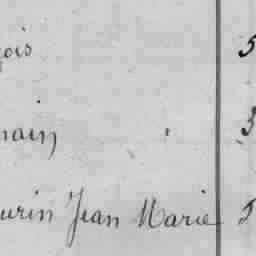 çois 5
main " 3
urin Jean Marie 5